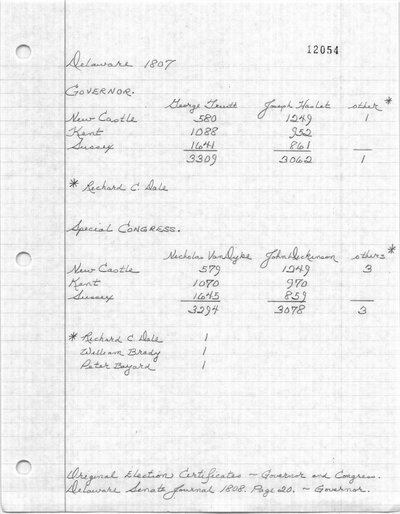 12054
Delaware 1807
GOVERNOR.
George Truitt Joseph Haslet other *
New Castle 580 1249 1
Kent 1088 952
Sussex 1641 861
3309 3062 1
* Richard C. Dale
Special CONGRESS.
Nicholas VanDyke John Dickenson others *
New Castle 579 1249 3
Kent 1070 970
Sussex 1645 859
3294 3078 3
* Richard C Dale 1
William Brady 1
Peter Bayard 1
Original Election Certificates - Governor and Congress.
Delaware Senate Journal 1808. Page 20. - Governor.